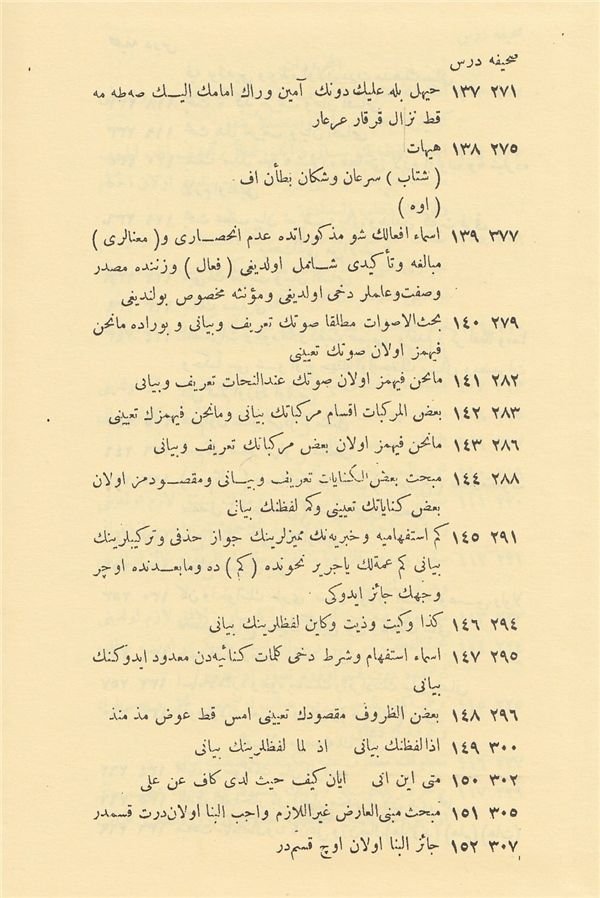 صحیفه درس
٢٧١ ١٣٧ حیهل بله علیك دونك آمین وراك امامك الیــك صه‌طه مه
قط نزال قرقار عرعار
٢٧٥ ١٣٨ هیهات
( شتاب ) سرعان وشكان بطأن اف
( اوه )
٣٧٧ ١٣٩ اسماء افعالك شو مذكوراتده عدم انحصاری و( معنالری )
مبالغه وتأكیدی شــامل اولدیغی ( فعال ) وزننده مصدر
وصفت‌وعلملر دخی اولدیغی ومؤنثه مخصوص بولندیغی
٢٧٩ ١٤٠ بحث‌الاصوات مطلقا صوتك تعریف وبیانی و بوراده مانحن
فیهمز اولان صوتك تعیینی
٢٨٢ ١٤١ مانحن فیهمز اولان صوتك عندالنحات تعریف وبیانی
٢٨٣ ١٤٢ بعض المركبات اقسام مركباتك بیانی ومانحن فیهمزك تعیینی
٢٨٦ ١٤٣ مانحن فیهمز اولان بعض مركباتك تعریف وبیانی
٢٨٨ ١٤٤ مبحث بعض‌الكنایات تعریف وبیــانی ومقصــودمز اولان
بعض كنایاتك تعیینی وكم لفظنك بیانی
٢٩١ ١٤٥ كم استفهامیه وخبریه‌نك ممیزلرینك جواز حذفی وتركیبلرینك
بیانی كم عمةلك یاجریر نحونده (كم ) ده ومابعــدنده اوچر
وجهك جائز ایدوكی
٢٩٤ ١٤٦ كذا وكیت وذیت وكاین لفظلرینك بیانی
٢٩٥ ١٤٧ اسماء استفهام وشرط دخی كلمات كنائیه‌دن معدود ایدوكنك
بیانی
٢٩٦ ١٤٨ بعض الظروف مقصودك تعیینی امس قط عوض مذ منذ
٣٠٠ ١٤٩ اذالفظنك بیانی اذ لما لفظلرینك بیانی
٣٠٢ ١٥٠ متی این انی ایان كیف حیث لدی كاف عن علی
٣٠٥ ١٥١ مبحث مبنی‌العارض غیراللازم واجب البنا اولان‌درت قسمدر
٣٠٧ ١٥٢ جائز البنا اولان اوچ قسم‌در